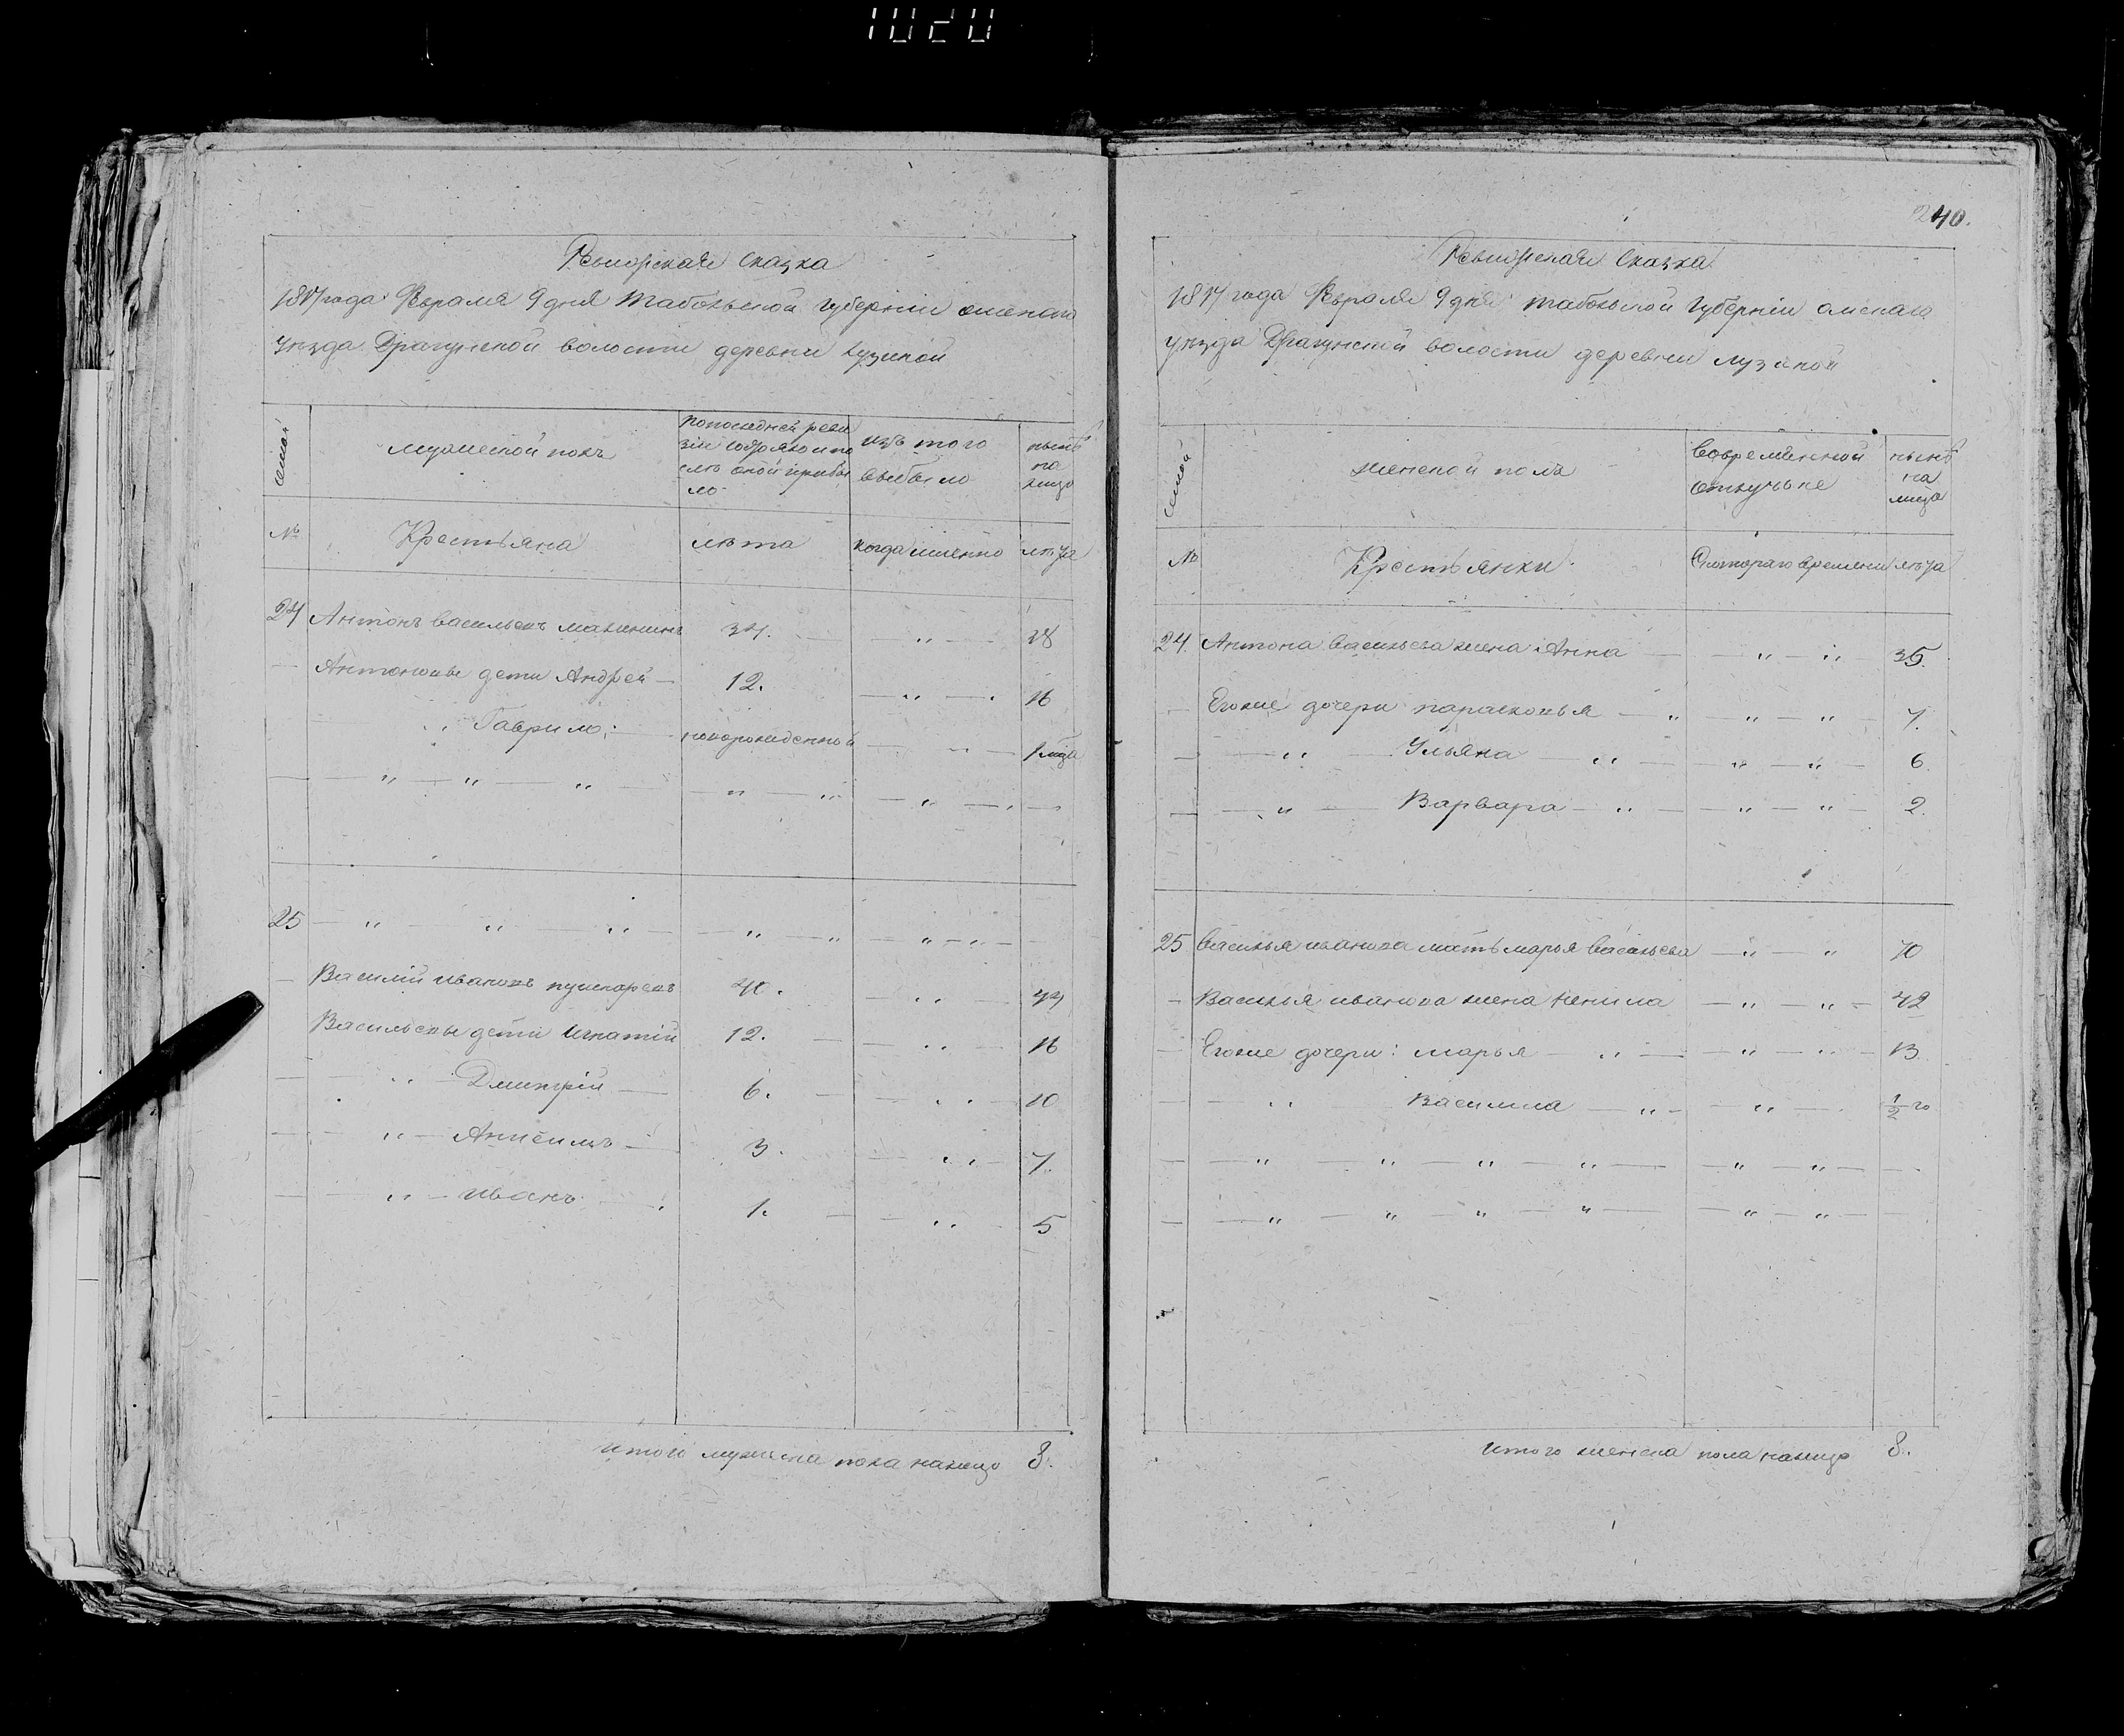 1020
Ревизская Сказка
1817 года Февраля 9 дня Табольской губернии омскаго
уезда Драгунской волости деревни лузиной
семьи
мужеской полъ
по последней реви
зии состояло и по
сле оной прибы
ло
изъ того
выбыло
ныне
на
лицо
№
Крестьяна
лета
когда именно
лета
24 Антонъ васильевъ 34. 38
Антоновы дети Андрей 12. 16
Гаврило: новорожденной 1 года
25
Василий ивановъ пушкаревъ 40. 44
Васильевы дети Игнатий 12. 16
Дмитрий 6. 10
Антипъ 3. 7.
иванъ 1. 5
итого мужеска пола налицо 8.
240.
Ревизская Сказка
1817 года Февраля 9 дня табольской губернии омскаго
уезда Драгунской волости деревни лузиной
семьи
женской полъ
во временной
отлучьке
ныне
на
лицо
№
Крестьянки
С котораго времени
лета
24. Антона васильева жена Анна 35.
Егоже дочери парасковья 7.
Ульяна 6.
Варвара 2.
25 Василья иванова мать марья васильева 70
Василья иванова жена ненила 42
Егоже дочери: марья 13
Василиса 1/2 го
итого женска пола налицо 8.